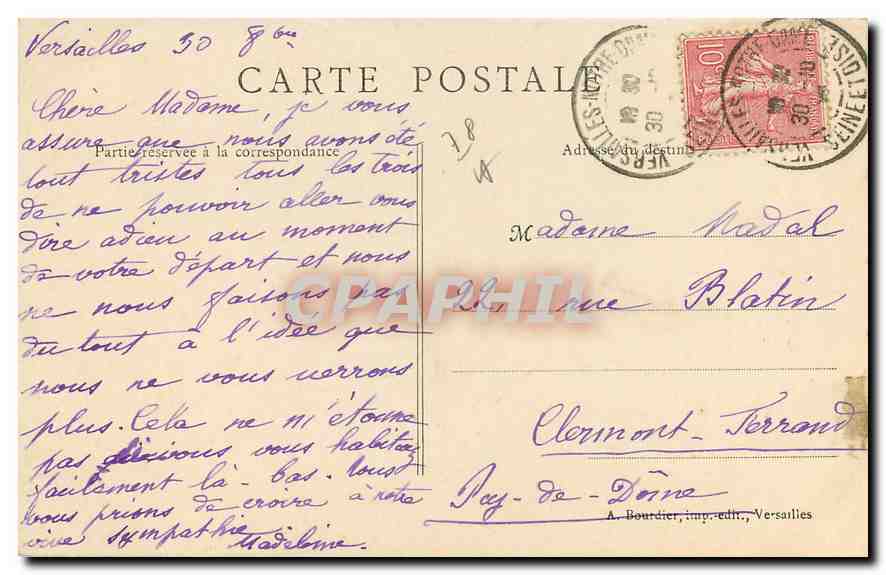 Versailles 30 8bre
CARTE POSTALE
Partie réservée à la correspondance
Adresse du destin
Chère Madame, je vous
assure que nous avons été
tout tristes tous les trois
de ne pouvoir aller vous
dire adieu au moment
de votre départ et nous
ne nous faisons pas
du tout à l'idée que
nous ne vous verrons
plus. Cela ne m'étonne
pas vous vous habituez
facilement là-bas. Vous
vous prions de croire à notre
vive sympathie
Madeleine.
78
Madame Nadal
22, rue Blatin
Clermont-Ferrand
Puy-de-Dôme
A. Bourdier, imp.-edit., Versailles
VERSAILLES-NOTRE-DAME
30
SEINE ET OISE
10
CPAPHIL